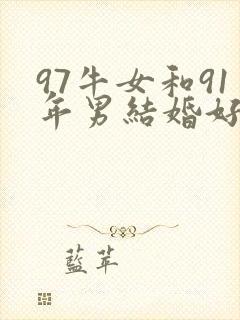 97牛女和91
年男結婚好
藍苹